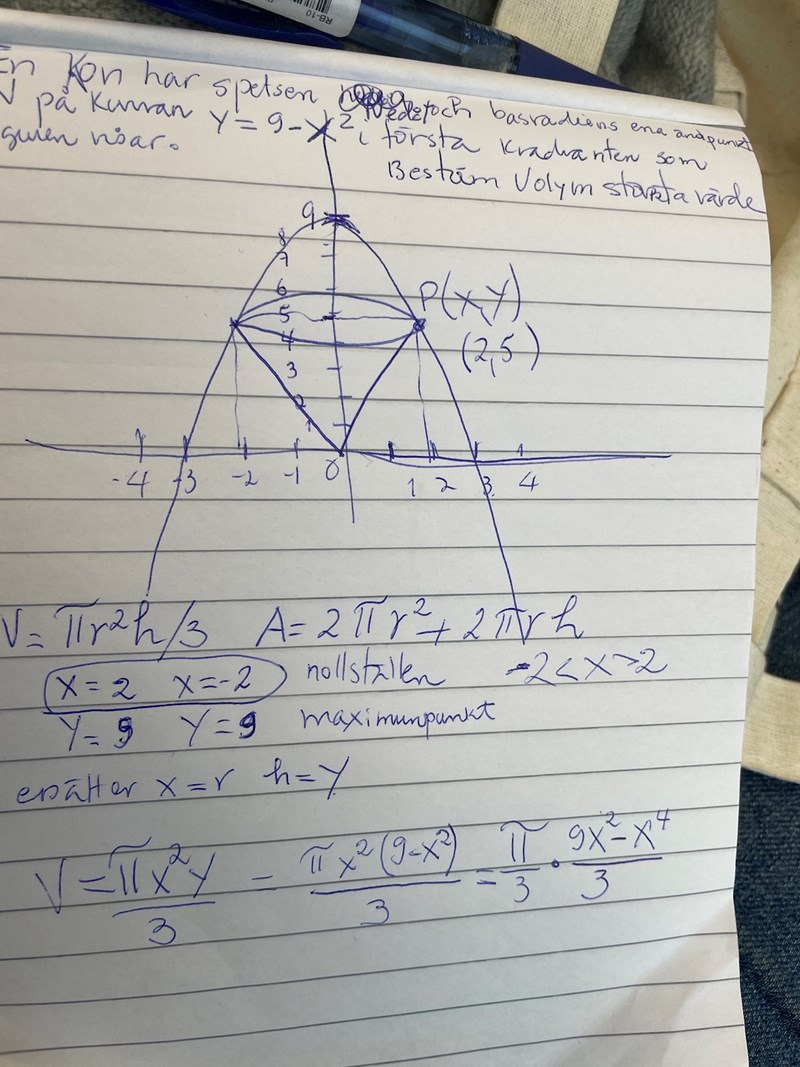 RB-10
En Kon har spetsen och basradiens ena ändpunkt
på Kurvan Y = 9 - X² i första Kradranten som
guien visar. Bestäm Volym största värde
9
8
7
6
5
4
3
2
1
P(X,Y)
(2,5)
-4 -3 -2 -1 0 1 2 3 4
V = πr²h/3 A = 2πr² + 2πrh
X = 2 X = -2 nollställen -2 < X > 2
Y = 9 Y = 9 maximumpunkt
ersätter X = r h = Y
V = πX²Y/3 = πX²(9-X²)/3 = π/3 · 9X²-X⁴/3